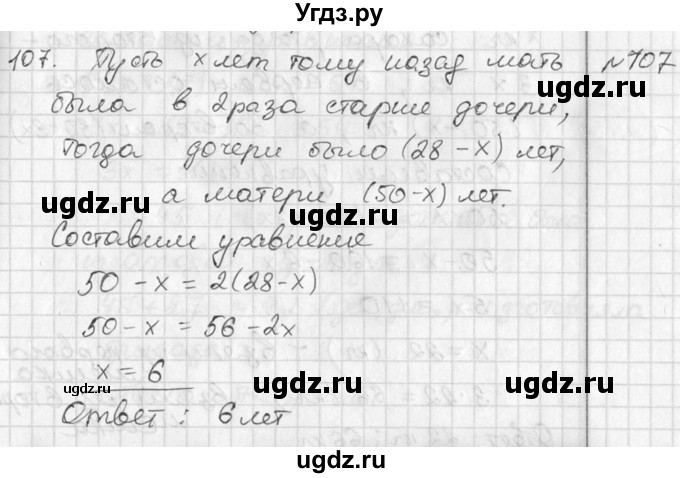 Угдз.ру
107. Пусть x лет тому назад мать №107
была в 2 раза старше дочери,
тогда дочери было (28 - x) лет,
а матери (50 - x) лет.
ugdz.ru ugdz.ru ugdz.ru
Составим уравнение
50 - x = 2(28 - x)
50 - x = 56 - 2x
x = 6
ugdz.ru ugdz.ru ugdz.ru
Ответ : 6 лет
ugdz.ru